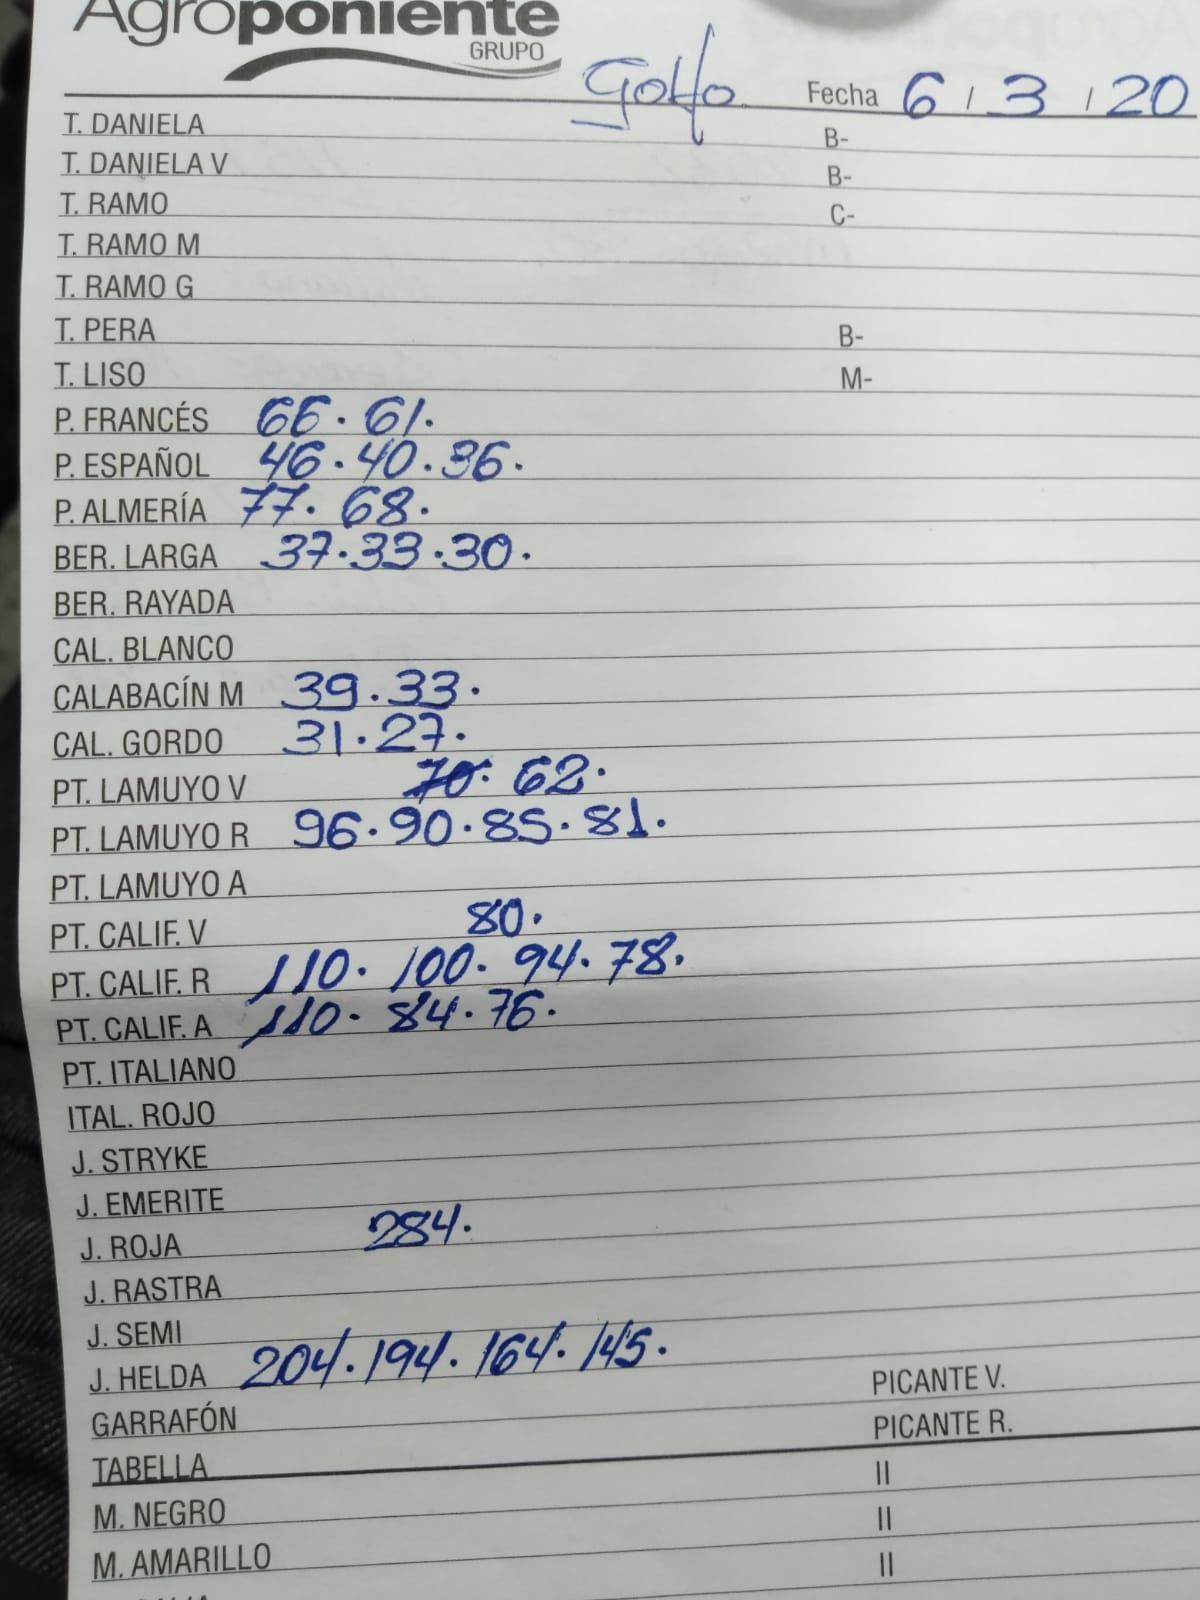 Agroponiente
GRUPO
Golfo Fecha 6 / 3 / 20
T. DANIELA B-
T. DANIELA V B-
T. RAMO C-
T. RAMO M
T. RAMO G
T. PERA B-
T. LISO M-
P. FRANCÉS 66. 61.
P. ESPAÑOL 46. 40. 36.
P. ALMERÍA 77. 68.
BER. LARGA 37. 33. 30.
BER. RAYADA
CAL. BLANCO
CALABACÍN M 39. 33.
CAL. GORDO 31. 27.
PT. LAMUYO V 70. 62.
PT. LAMUYO R 96. 90. 85. 81.
PT. LAMUYO A
PT. CALIF. V 80.
PT. CALIF. R 110. 100. 94. 78.
PT. CALIF. A 110. 84. 76.
PT. ITALIANO
ITAL. ROJO
J. STRYKE
J. EMERITE
J. ROJA 284.
J. RASTRA
J. SEMI
J. HELDA 204. 194. 164. 145.
GARRAFÓN PICANTE V.
TABELLA PICANTE R.
M. NEGRO II
M. AMARILLO II
II